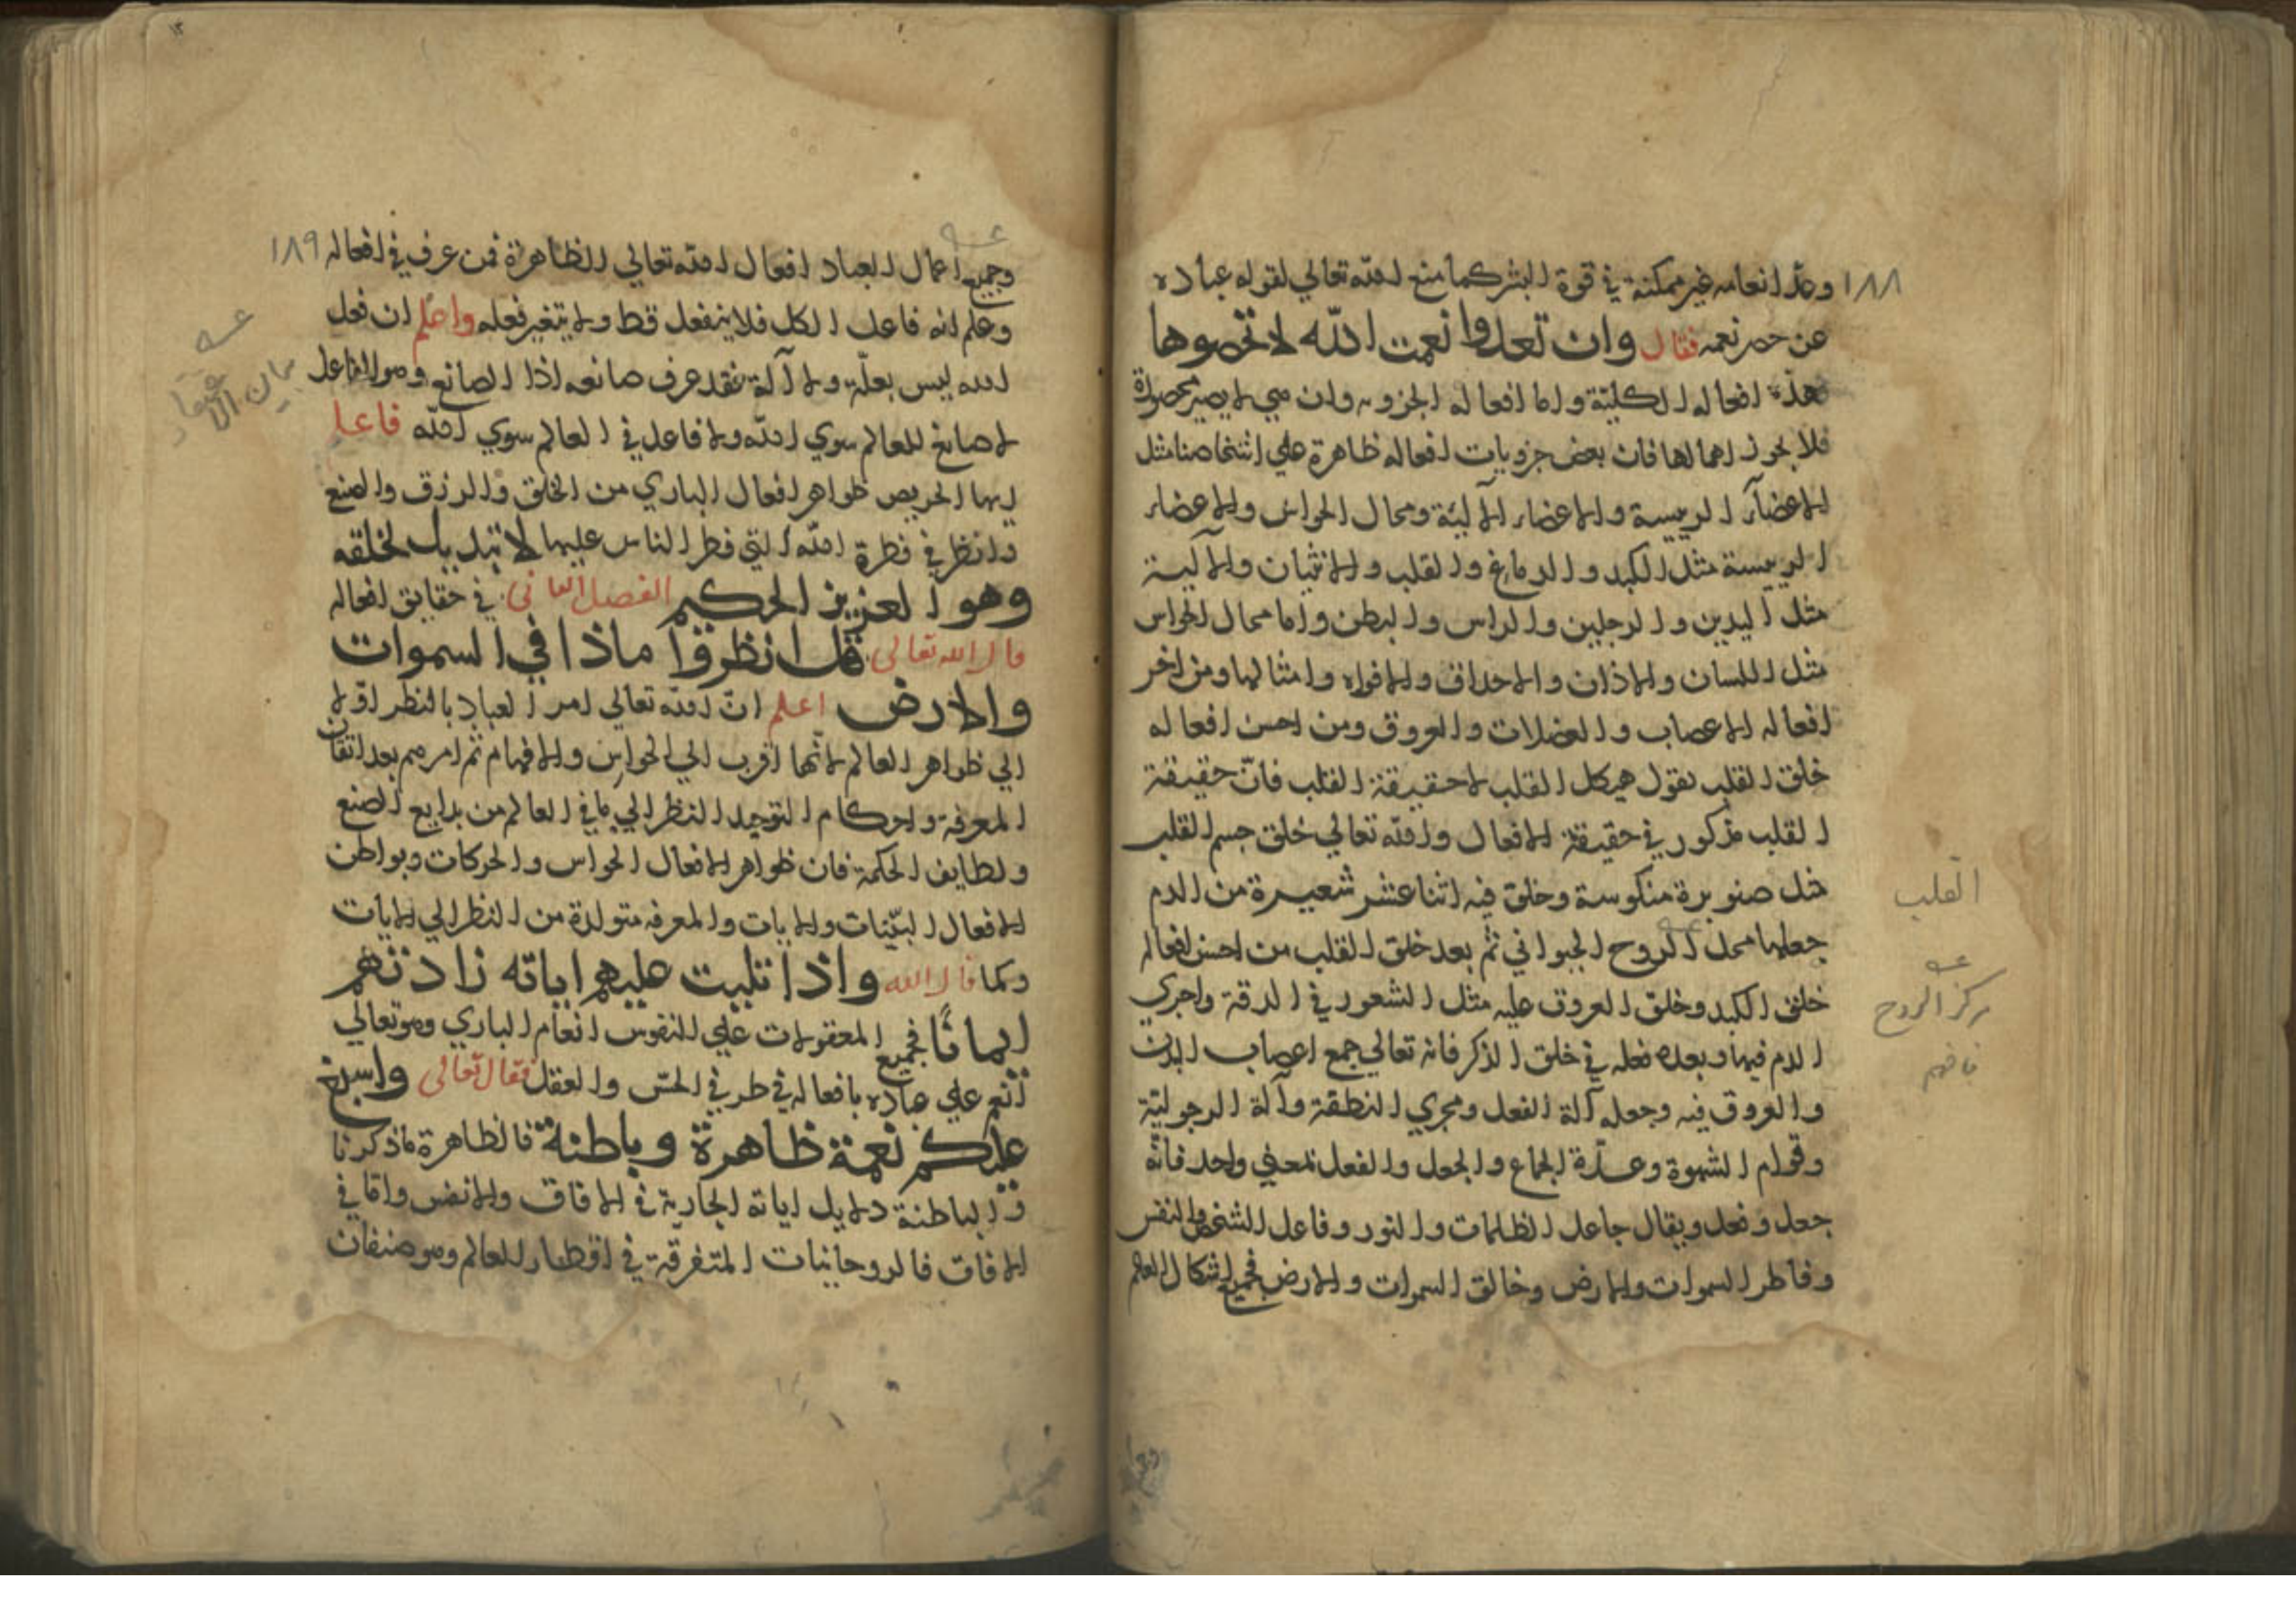 ١٨٨ وعدّ انعامه غير ممكنة في قوة البشر كما منع الله تعالي لقوله عباده
عن حصر نعمه فقال وان تعدوا نعمت الله لا تحصوها
فهذه افعاله الكليّة واما افعاله الجزويه وان هي لا يصير محصورة
فلا يجوز اهمالها فان بعض جزويات افعاله ظاهرة علي اشخاصنا مثل
الاعضآء الرييسة والاعضاء الآليّة ومحال الحواس والاعضاء
الرييسة مثل الكبد والدماغ والقلب والانثيان والآلية
مثل اليدين والرجلين والراس والبطن واما محال الحواس
مثل اللسان والاذان والاحداق والافواه وامثالها ومن اخر
افعاله الاعصاب والعضلات والعروق ومن احسن افعاله
خلق القلب نقول هيكل القلب لا حقيقة القلب فانّ حقيقة
القلب مذكور في حقيقة الافعال والله تعالي خلق جسم القلب
مثل صنوبرة منكوسة وخلق فيه اثنا عشر شعيرة من الدم
جعلها محل الروح الحيواني ثم بعد خلق القلب من احسن افعاله
خلق الكبد وخلق العروق عليه مثل الشعور في الدقة واجري
الدم فيها وبعده فعله في خلق الذكر فانه تعالي جمع اعصاب البدن
والعروق فيه وجعله آلة الفعل ومجري النطفة وآلة الرجوليّة
وقوام الشهوة وعدّة الجماع والجعل والفعل لمعني واحد فانّه
جعل وفعل ويقال جاعل الظلمات والنور وفاعل الشخص والنفس
وفاطر السموات والارض وخالق السموات والارض فجميع اشكال العالم
القلب
مركز الروح
فافهم
وجميع اعمال العباد افعال الله تعالي الظاهرة فمن عرف في افعاله ١٨٩
وعلم انه فاعل الكل فلا ينفعل قط ولا يتغير فعله واعلم ان فعل
الله ليس بعلّة ولا آلة فقد عرف صانعه اذا الصانع وهو الفاعل
لا صانع للعالم سوي الله ولا فاعل في العالم سوي الله فاعلم
ايها الحريص ظواهر افعال الباري من الخلق والرزق والصنع
وانظر في فطرة الله التي فطر الناس عليها لا تبديل لخلقه
وهو العزيز الحكيم الفصل الثاني في حقايق افعاله
قال الله تعالى قل انظروا ماذا في السموات
والارض اعلم انّ الله تعالي امر العباد بالنظر اوّلا
الي ظواهر العالم لانّها اقرب الي الحواس والافهام ثم امرهم بعد اتقان
المعرفة واحكام التوحيد النظر الي ما في العالم من بدايع الصنع
ولطايف الحكمة فان ظواهر الافعال الحواس والحركات وبواطن
الافعال البيّنات والايات والمعرفه متولدة من النظر الي الايات
وكما قال الله واذا تليت عليهم اياته زادتهم
ايمانًا فجميع المعقولات علي النفوس انعام الباري وهو تعالي
انعم علي عباده بافعاله في طرفي الحسّ والعقل فقال تعالى واسبغ
عليكم نعمة ظاهرة وباطنة فالظاهرة ما ذكرنا
والباطنة دلايل اياته الجارية في الافاق والانفس وامّا في
الافاق فالروحانيات المتفرقة في اقطار العالم وهو صنفان
بيان الاعتقاد